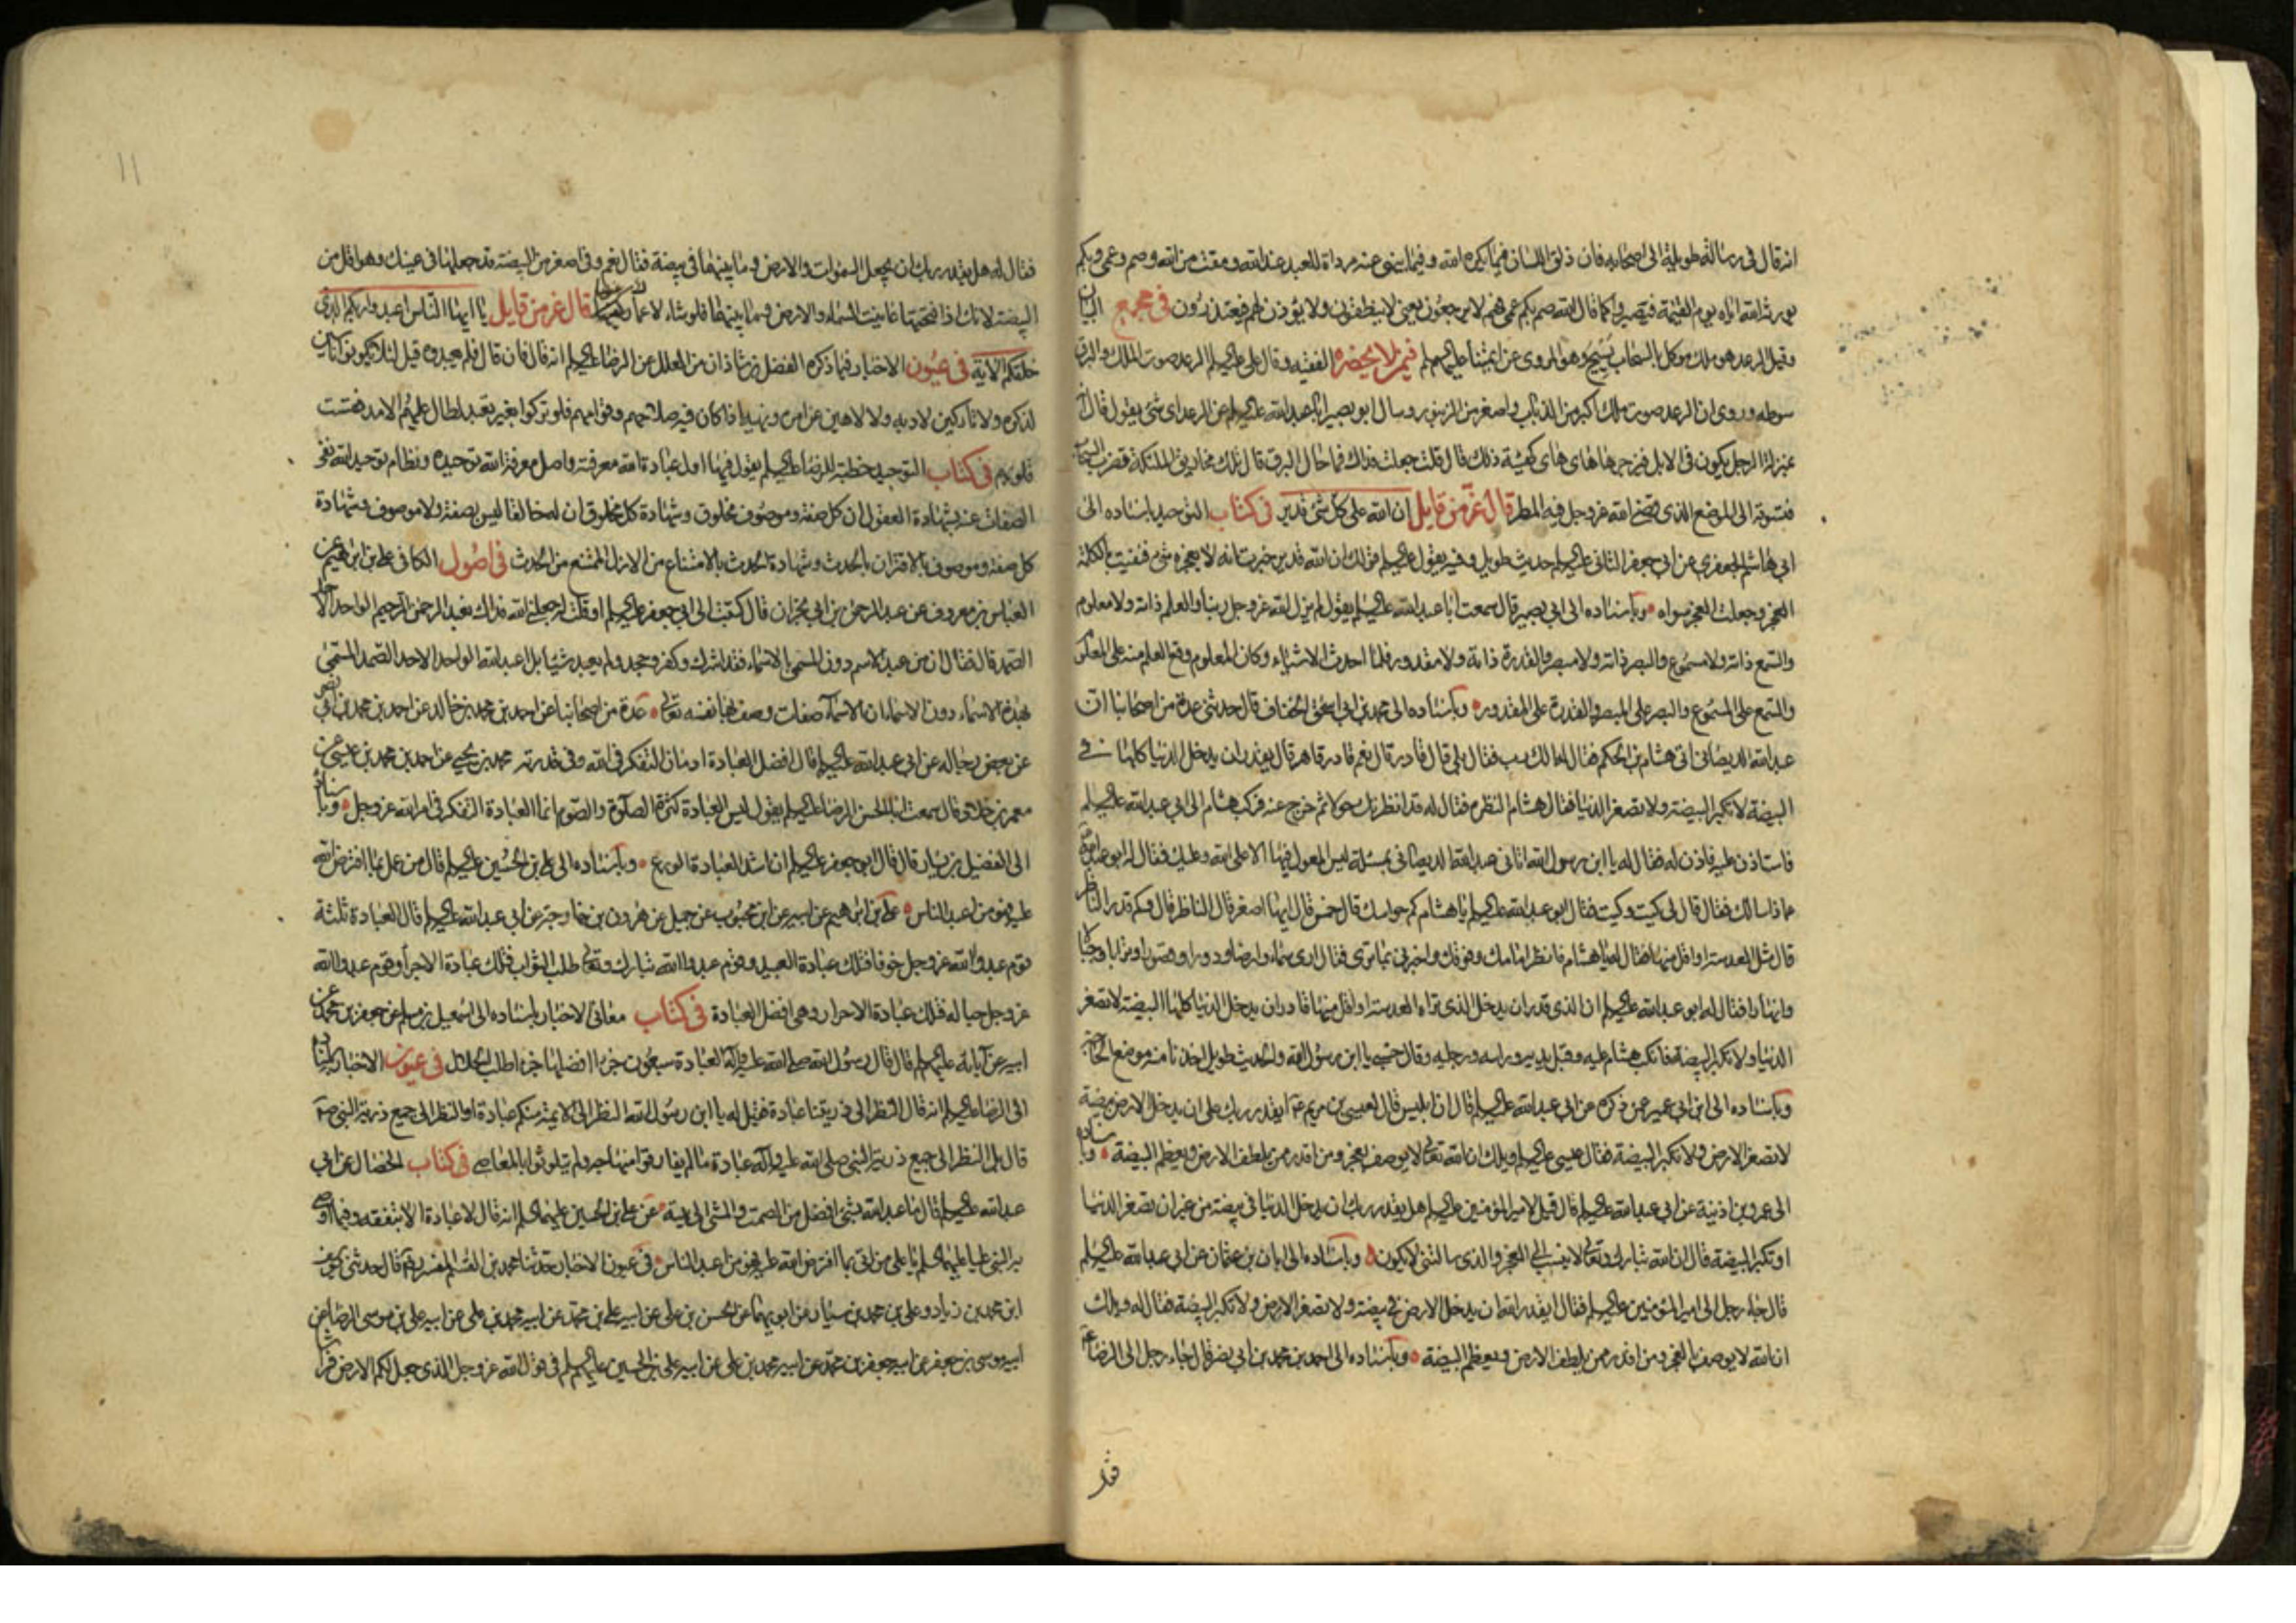 انه قال في رسالة طويلة الى اصحابه فان ذلق اللسان فيما يكره الله وفيما ينهى عنه مرداة للعبد عند الله ومقت من الله وصم وعمى وبكم
يورثه الله اياه يوم القيمة فتصيروا كما قال الله صم بكم عمى فهم لا يرجعون يعنى لا ينطقون ولا يؤذن لهم فيعتذرون في مجمع البيان
وقيل الرعد هو ملك موكل بالسحاب يسبح وهو المروى عن ائمتنا عليهم السلم فيمن لا يحضره الفقيه وقال على عليه السلم الرعد صوت الملك والبرق
سوطه وروى ان الرعد صوت ملك اكبر من الذباب واصغر من الزنبور وسال ابو بصير ابا عبد الله عليه السلم عن الرعد اى شئ يقول قال انه
بمنزلة الرجل يكون في الابل فيزجرها هاى هاى كهيئة ذلك قال قلت جعلت فداك فما حال البرق قال تلك مخاريق الملئكة تضرب السحاب
فتسوقه الى الموضع الذى قضى الله عز وجل فيه المطر قال عز من قايل ان الله على كل شئ قدير في كتاب التوحيد باسناده الى
ابي هاشم الجعفري عن ابي جعفر الثاني عليه السلم حديث طويل وفيه يقول عليه السلم قولك ان الله قدير خبرت انه لا يعجزه شئ فنفيت بالكلمة
العجز وجعلت العجز سواه وباسناده الى ابي بصير قال سمعت ابا عبد الله عليه السلم يقول لم يزل الله عز وجل ربنا والعلم ذاته ولا معلوم
والسمع ذاته ولا مسموع والبصر ذاته ولا مبصر والقدرة ذاته ولا مقدور فلما احدث الاشياء وكان المعلوم وقع العلم منه على المعلوم
والسمع على المسموع والبصر على المبصر والقدرة على المقدور وباسناده الى محمد بن ابي اسحق الخفاف قال حدثنى عدة من اصحابنا ان
عبد الله الديصاني اتى هشام بن الحكم فقال له الك رب فقال بلى قال قادر قال نعم قادر قاهر قال يقدر ان يدخل الدنيا كلها في
البيضة لا تكبر البيضة ولا تصغر الدنيا فقال هشام النظرة فقال له قد انظرتك حولا ثم خرج عنه فركب هشام الى ابي عبد الله عليه السلم
فاستاذن عليه فاذن له فقال له يا ابن رسول الله اتاني عبد الله الديصاني بمسئلة ليس المعول فيها الا على الله وعليك فقال له ابو عبد الله
عما ذا سالك فقال قال لى كيت وكيت فقال ابو عبد الله عليه السلم يا هشام كم حواسك قال خمس قال ايها اصغر قال الناظر قال وكم قدر الناظر
قال مثل العدسة او اقل منها فقال له يا هشام فانظر امامك وفوقك واخبرني بما ترى فقال ارى سماء وارضا ودورا وقصورا وترابا وجبالا
وانهارا فقال له ابو عبد الله عليه السلم ان الذى قدر ان يدخل الذى تراه العدسة او اقل منها قادر ان يدخل الدنيا كلها البيضة لا تصغر
الدنيا ولا تكبر البيضة فانكب هشام عليه وقبل يديه وراسه ورجليه وقال حسبى يا ابن رسول الله والحديث طويل اخذنا منه موضع الحاجة
وباسناده الى ابن ابي عمير عمن ذكره عن ابي عبد الله عليه السلم قال ان ابليس قال لعيسى بن مريم ع ايقدر ربك على ان يدخل الارض بيضة
لا تصغر الارض ولا تكبر البيضة فقال عيسى عليه السلم ويلك ان الله تعالى لا يوصف بعجز ومن اقدر ممن يلطف الارض ويعظم البيضة وباسناده
الى عمر بن اذينة عن ابي عبد الله عليه السلم قال قيل لامير المؤمنين عليه السلم هل يقدر ربك ان يدخل الدنيا في بيضة من غير ان تصغر الدنيا
او تكبر البيضة قال ان الله تبارك وتعالى لا ينسب الى العجز والذى سالتنى لا يكون وباسناده الى ابان بن عثمان عن ابي عبد الله عليه السلم
قال جاء رجل الى امير المؤمنين عليه السلم فقال ايقدر الله ان يدخل الارض في بيضة ولا تصغر الارض ولا تكبر البيضة فقال له ويلك
ان الله لا يوصف بالعجز ومن اقدر ممن يلطف الارض ويعظم البيضة وباسناده الى احمد بن محمد بن ابي نصر قال جاء رجل الى الرضا ع
فقال
١١
فقال له هل يقدر ربك ان يجعل السموات والارض وما بينهما في بيضة فقال نعم وفي اصغر من البيضة قد جعلها في عينك وهو اقل من
البيضة لانك اذا فتحتها عاينت السماء والارض وما بينهما فلو شاء لاعماك عنها قال عز من قايل يا ايها الناس اعبدوا ربكم الذى
خلقكم الاية في عيون الاخبار فيما ذكره الفضل بن شاذان من العلل عن الرضا عليه السلم انه قال فان قال فلم يعبدوه قيل لئلا يكونوا ناسين
لذكره ولا تاركين لادبه ولا لاهين عن امره ونهيه اذا كان فيه صلاحهم وقوامهم فلو تركوا بغير تعبد لطال عليهم الامد فقست
قلوبهم في كتاب التوحيد خطبة للرضا عليه السلم يقول فيها اول عبادة الله معرفته واصل معرفة الله توحيده ونظام توحيد الله نفى
الصفات عنه بشهادة العقول ان كل صفة وموصوف مخلوق وشهادة كل مخلوق ان له خالقا ليس بصفة ولا موصوف وشهادة
كل صفة وموصوف بالاقتران بالحدث وشهادة الحدث بالامتناع من الازل الممتنع من الحدث في اصول الكافي على بن ابرهيم عن
العباس بن معروف عن عبد الرحمن بن ابي نجران قال كتبت الى ابي جعفر عليه السلم او قلت له جعلنى الله فداك نعبد الرحمن الرحيم الواحد الاحد
الصمد قال فقال ان من عبد الاسم دون المسمى بالاسماء فقد اشرك وكفر وجحد ولم يعبد شيئا بل اعبد الله الواحد الاحد الصمد المسمى
بهذه الاسماء دون الاسماء ان الاسماء صفات وصف بها نفسه تعالى عدة من اصحابنا عن احمد بن محمد بن خالد عن احمد بن محمد بن ابي نصر
عن بعض رجاله عن ابي عبد الله عليه السلم قال افضل العبادة ادمان التفكر في الله وفي قدرته محمد بن يحيى عن احمد بن محمد بن عيسى عن
معمر بن خلاد قال سمعت ابا الحسن الرضا عليه السلم يقول ليس العبادة كثرة الصلوة والصوم انما العبادة التفكر في امر الله عز وجل وباسناده
الى الفضيل بن يسار قال قال ابو جعفر عليه السلم ان اشد العبادة الورع وباسناده الى على بن الحسين عليه السلم قال من عمل بما افترض الله
عليه فهو من اعبد الناس على بن ابرهيم عن ابيه عن ابن محبوب عن جميل عن هرون بن خارجة عن ابي عبد الله عليه السلم قال العبادة ثلثة
قوم عبدوا الله عز وجل خوفا فتلك عبادة العبيد وقوم عبدوا الله تبارك وتعالى طلب الثواب فتلك عبادة الاجراء وقوم عبدوا الله
عز وجل حبا له فتلك عبادة الاحرار وهى افضل العبادة في كتاب معاني الاخبار باسناده الى اسمعيل بن مسلم عن جعفر بن محمد عن
ابيه عن آبائه عليهم السلم قال قال رسول الله صلى الله عليه وآله العبادة سبعون جزءا افضلها جزءا طلب الحلال في عيون الاخبار باسناده
الى الرضا عليه السلم انه قال النظر الى ذريتنا عبادة فقيل له يا ابن رسول الله النظر الى الائمة منكم عبادة او النظر الى جميع ذرية النبى ص
قال بل النظر الى جميع ذرية النبى صلى الله عليه وآله عبادة ما لم يفارقوا منهاجه ولم يتلوثوا بالمعاصى في كتاب الخصال عن ابي
عبد الله عليه السلم قال ما عبد الله بشئ افضل من الصمت والمشى الى بيته عن على بن الحسين عليهما السلم انه قال لا عبادة الا بتفقه وفيما اوصى
به النبى عليا عليهما السلم يا على من اتى بما افترض الله عليه فهو من اعبد الناس في عيون الاخبار حدثنا محمد بن القسم المفسر ره قال حدثنى يوسف
ابن محمد بن زياد وعلى بن محمد بن سيار عن ابويهما عن الحسن بن على عن ابيه على بن محمد عن ابيه محمد بن على عن ابيه على بن موسى الرضا عن
ابيه موسى بن جعفر عن ابيه جعفر بن محمد عن ابيه محمد بن على عن ابيه على بن الحسين عليهم السلم في قول الله عز وجل الذى جعل لكم الارض فراشا